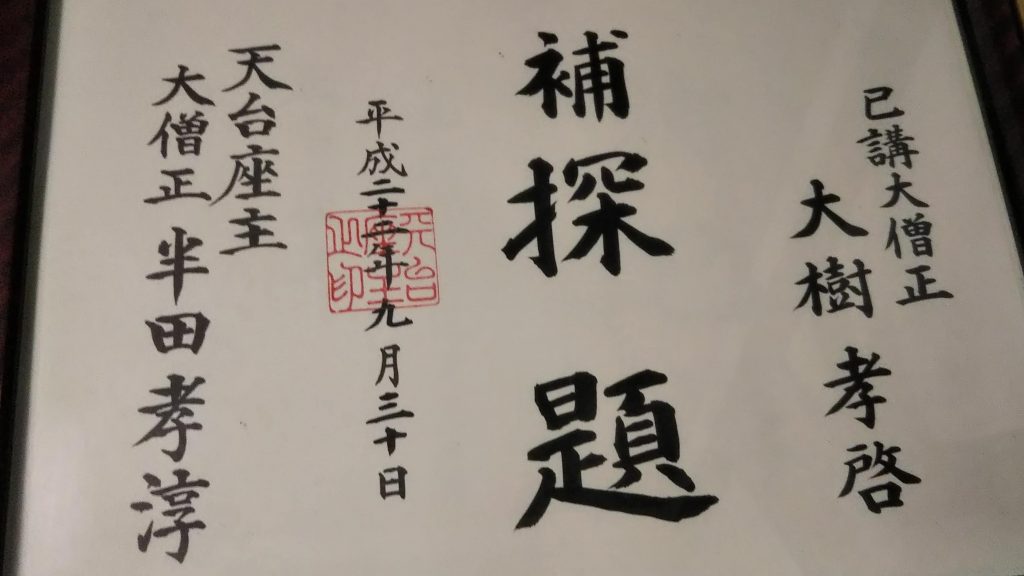 已講大僧正
大樹孝啓
補探題
平成二十年九月三十日
天台座主
大僧正 半田孝淳